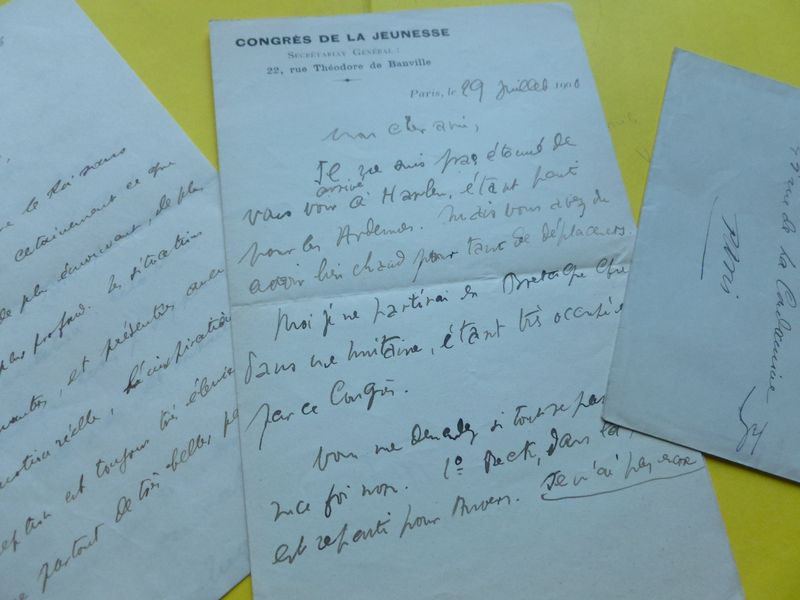 CONGRÈS DE LA JEUNESSE
SECRÉTARIAT GÉNÉRAL :
22, rue Théodore de Banville
Paris, le 29 Juillet 1900
Mon cher ami,
Je ne suis pas étonné de
vous voir arrivé à Harlem, étant parti
pour les Ardennes. Mais vous avez du
avoir bien chaud pour tant de déplacements.
Moi je ne partirai en Bretagne que
dans une huitaine, étant très occupé
par ce Congrès.
Vous me demandez si tout se
ma foi non. 1º Beck, dans la
est reparti pour Anvers. Je n'ai pas encore
certainement ce que
plus émouvant, de plus
plus profond. Les situations
et présentées avec
réelle, l'inspiration
est toujours très élevée
partout de très belles
rue de la
PARIS